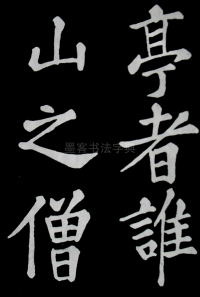 亭者誰
山之僧
墨客书法字典